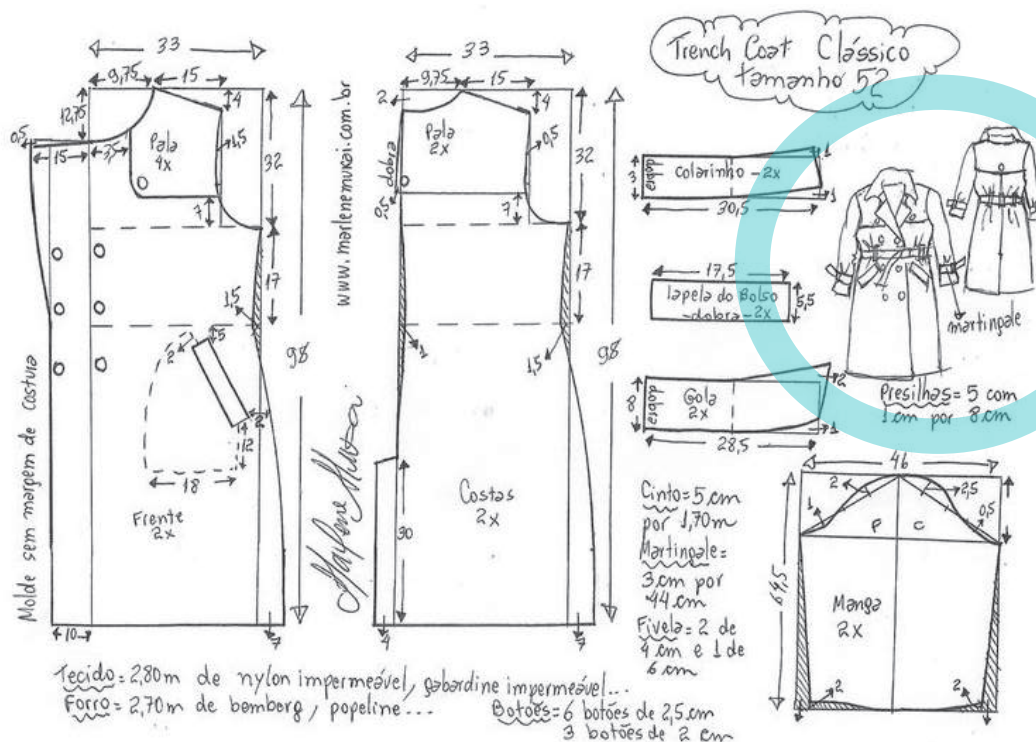 Trench Coat Clássico
tamanho 52
33
9,75
15
4
12,75
0,5
15
3,5
Pala
4x
1,5
32
7
17
1,5
98
5
2
2
12
18
Frente
2x
10
7
Molde sem margem de costura
www.marlenemukai.com.br
33
9,75
15
2
4
Pala
2x
0,5
dobra
0,5
32
7
17
1
1,5
98
Costas
2x
30
4
7
colarinho - 2x
dobra
3
1
1
30,5
17,5
lapela do Bolso
- dobra - 2x
5,5
Gola
2x
dobra
8
2
1
28,5
martingale
Presilhas = 5 com
1 cm por 8 cm
Cinto = 5 cm
por 1,70m
Martingale =
3 cm por
44 cm
Fivela = 2 de
4 cm e 1 de
6 cm
46
2
2,5
1
0,5
F
C
64,5
Manga
2x
2
2
Tecido = 2,80m de nylon impermeável, gabardine impermeável...
Forro = 2,70m de bemborg, popeline...
Botões = 6 botões de 2,5 cm
3 botões de 2 cm